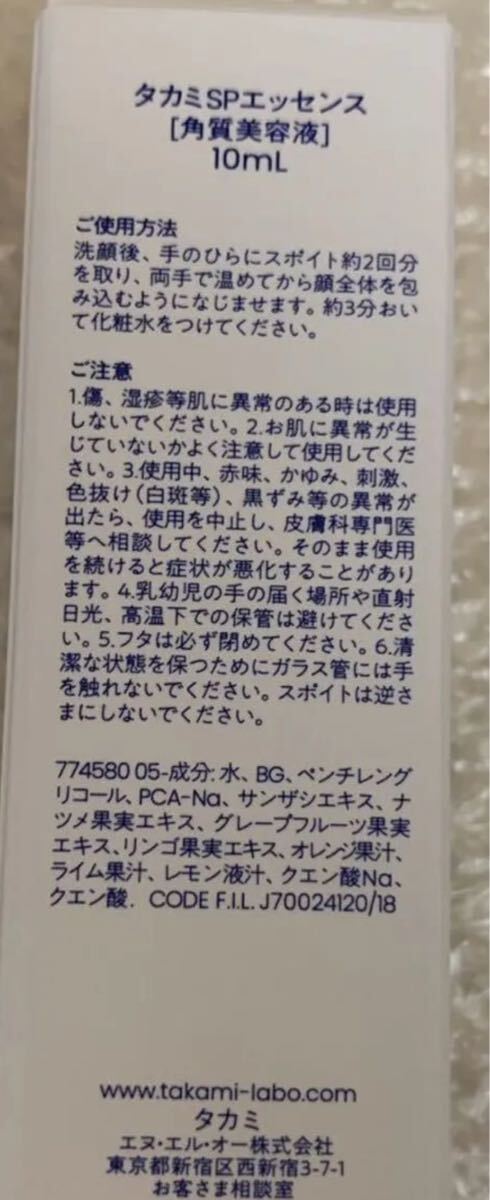 タカミSPエッセンス
[角質美容液]
10mL
ご使用方法
洗顔後、手のひらにスポイト約2回分
を取り、両手で温めてから顔全体を包
み込むようになじませます。約3分おい
て化粧水をつけてください。
ご注意
1.傷、湿疹等肌に異常のある時は使用
しないでください。2.お肌に異常が生
じていないかよく注意して使用してくだ
さい。3.使用中、赤味、かゆみ、刺激、
色抜け(白斑等)、黒ずみ等の異常が
出たら、使用を中止し、皮膚科専門医
等へ相談してください。そのまま使用
を続けると症状が悪化することがあり
ます。4.乳幼児の手の届く場所や直射
日光、高温下での保管は避けてくださ
い。5.フタは必ず閉めてください。6.清
潔な状態を保つためにガラス管には手
を触れないでください。スポイトは逆さ
まにしないでください。
774580 05-成分: 水、BG、ペンチレング
リコール、PCA-Na、サンザシエキス、ナ
ツメ果実エキス、グレープフルーツ果実
エキス、リンゴ果実エキス、オレンジ果汁、
ライム果汁、レモン液汁、クエン酸Na、
クエン酸. CODE F.I.L. J70024120/18
www.takami-labo.com
タカミ
エヌ・エル・オー株式会社
東京都新宿区西新宿3-7-1
お客さま相談室